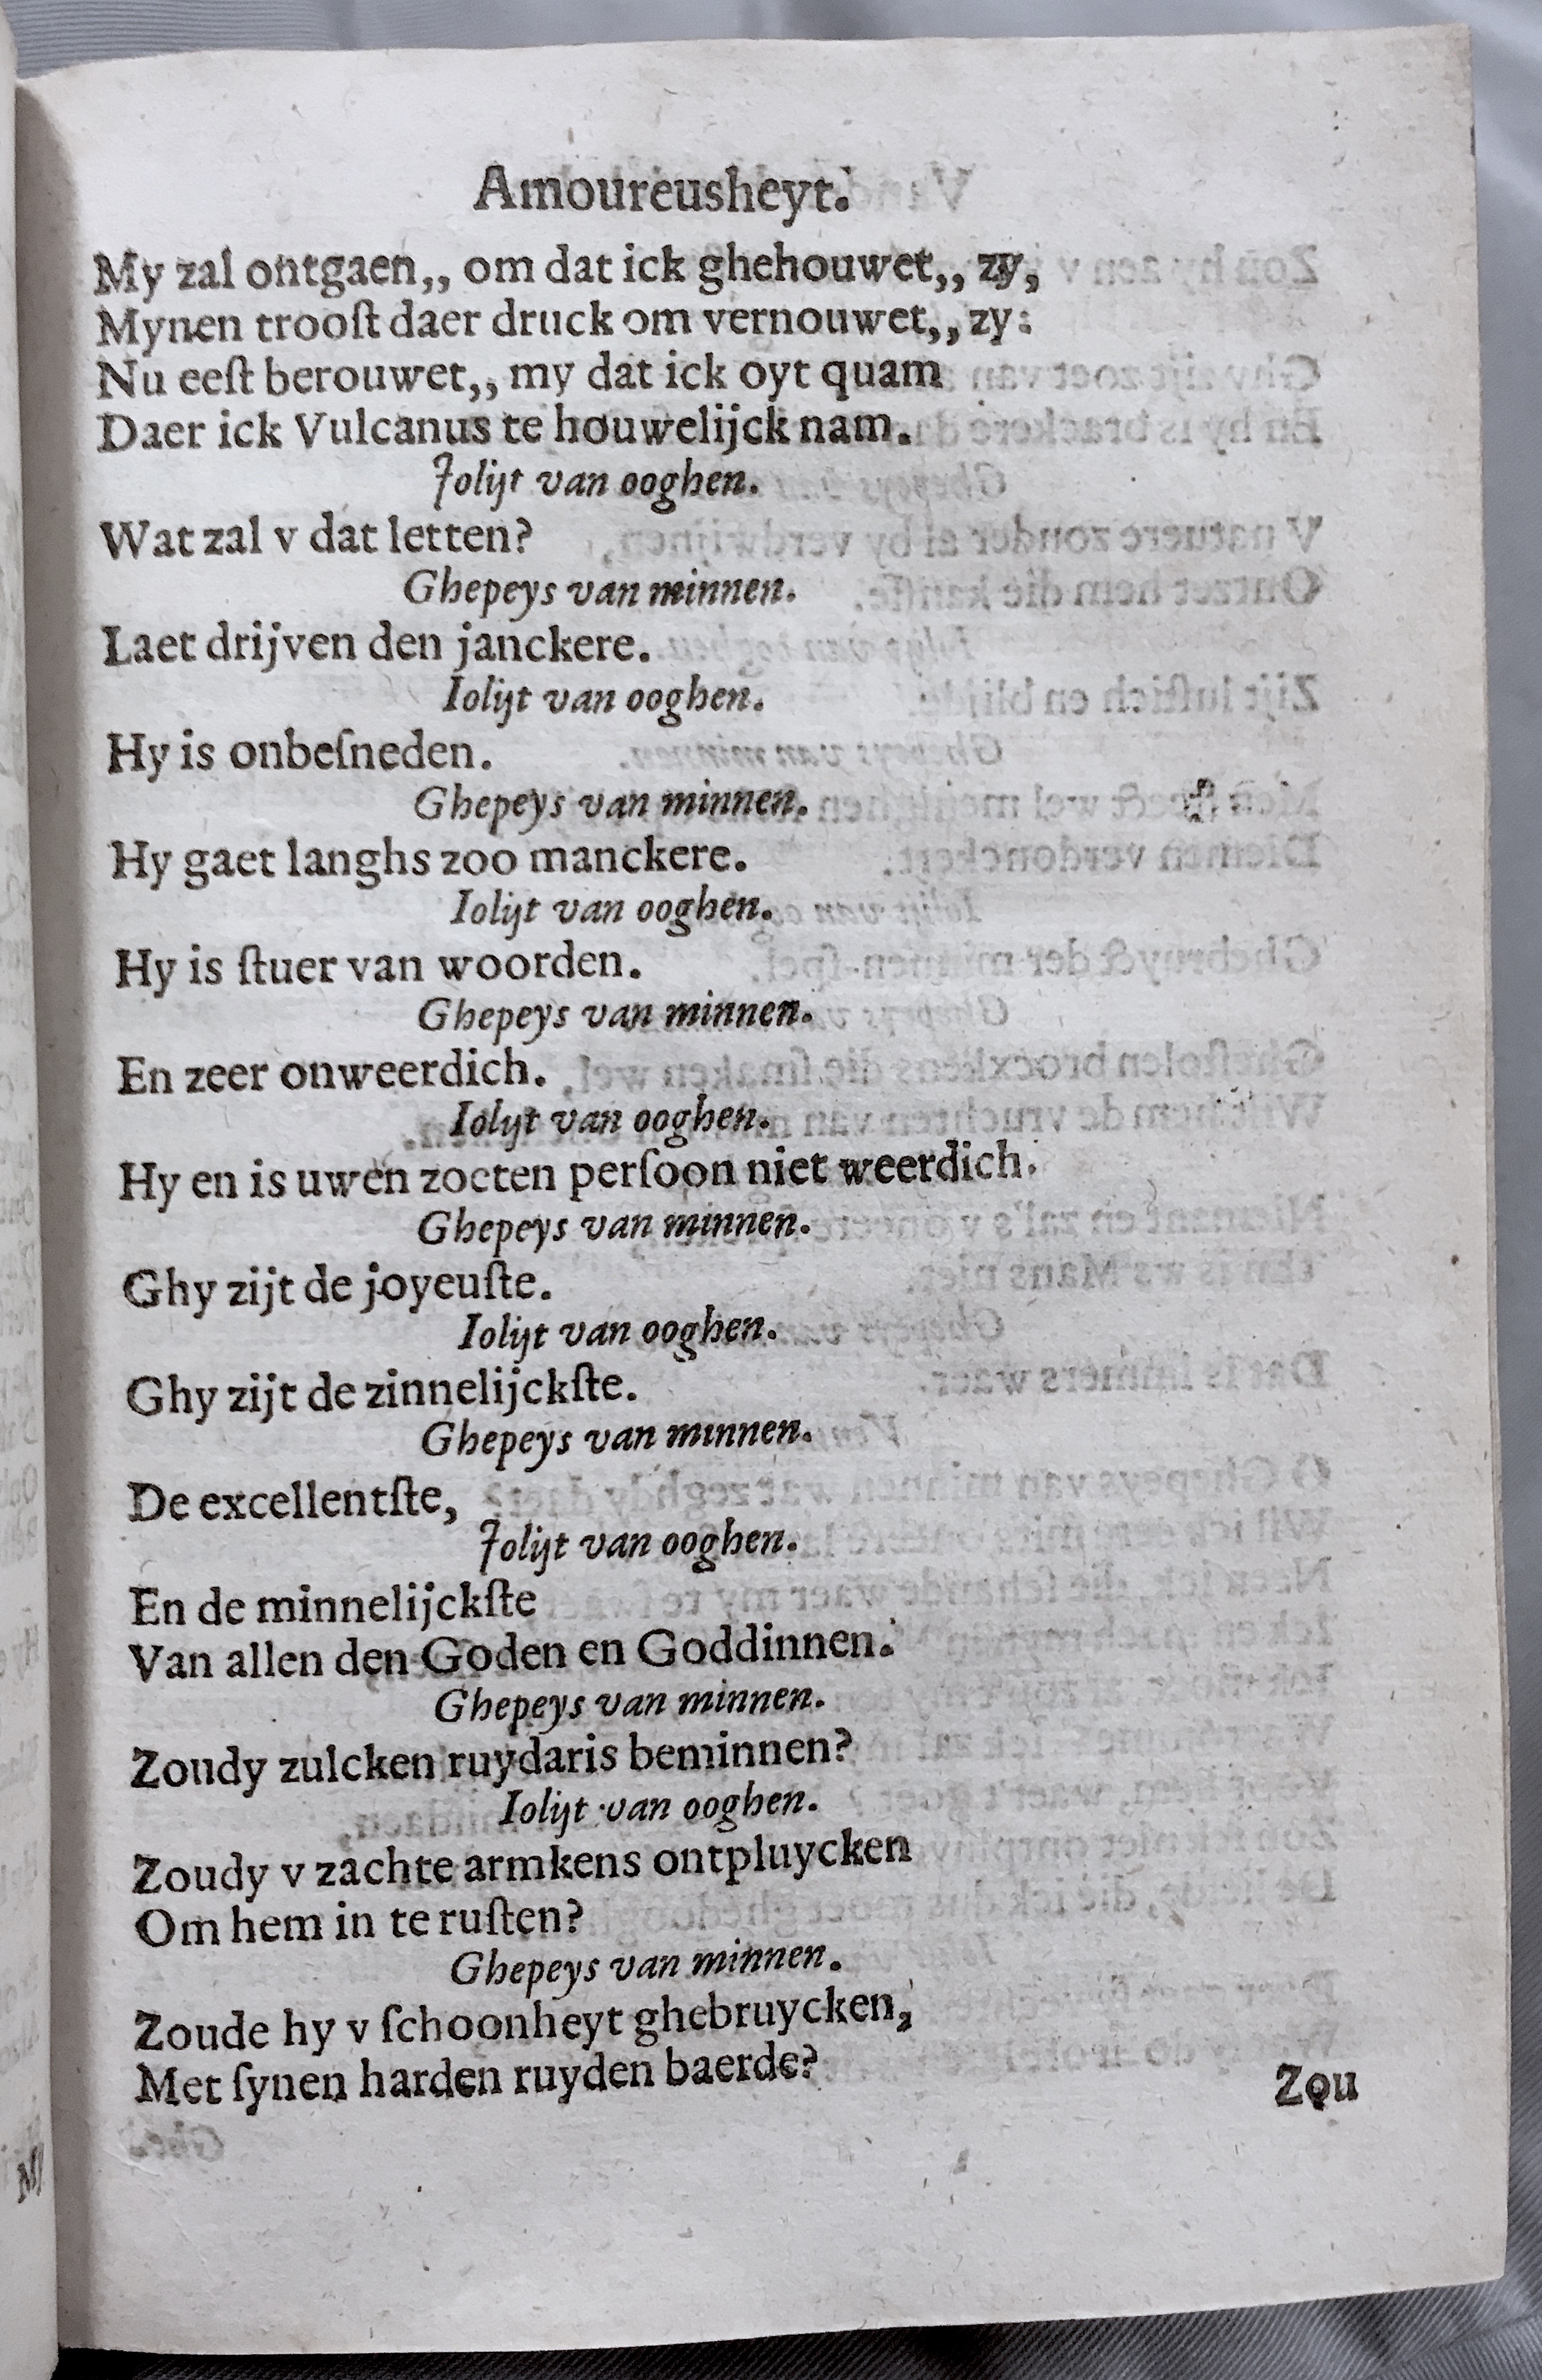 Amoureusheyt.
My zal ontgaen,, om dat ick ghehouwet,, zy,
Mynen trooſt daer druck om vernouwet,, zy:
Nu eeſt berouwet,, my dat ick oyt quam
Daer ick Vulcanus te houwelijck nam.
Jolijt van ooghen.
Wat zal v dat letten?
Ghepeys van minnen.
Laet drijven den janckere.
Iolijt van ooghen.
Hy is onbeſneden.
Ghepeys van minnen.
Hy gaet langhs zoo manckere.
Iolijt van ooghen.
Hy is ſtuer van woorden.
Ghepeys van minnen.
En zeer onweerdich.
Iolijt van ooghen.
Hy en is uwen zoeten perſoon niet weerdich.
Ghepeys van minnen.
Ghy zijt de joyeuſte.
Iolijt van ooghen.
Ghy zijt de zinnelijckſte.
Ghepeys van minnen.
De excellentſte,
Jolijt van ooghen.
En de minnelijckſte
Van allen den Goden en Goddinnen.
Ghepeys van minnen.
Zoudy zulcken ruydaris beminnen?
Iolijt van ooghen.
Zoudy v zachte armkens ontpluycken
Om hem in te ruſten?
Ghepeys van minnen.
Zoude hy v ſchoonheyt ghebruycken,
Met ſynen harden ruyden baerde?
Zou